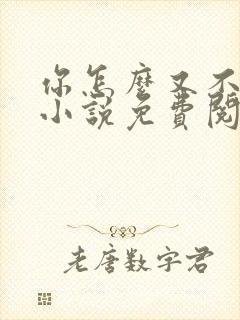 你怎麼又不
小說免費閱
老唐數字君